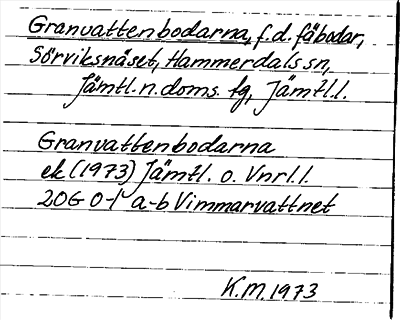 Granvattenbodarna, f.d. fäbodar,
Sörviksnäset, Hammerdals sn,
Jämtl. n. doms. tg, Jämtl.l.
Granvattenbodarna
ek (1973) Jämtl. o. Vnrl.l.
20G 0-1 a-b Vimmarvattnet
K.M. 1973